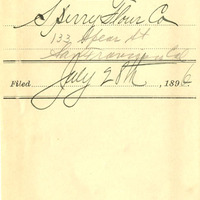 Sperry Flour Co
133 Spear St
San Francisco Cal
Filed July 28th, 1896